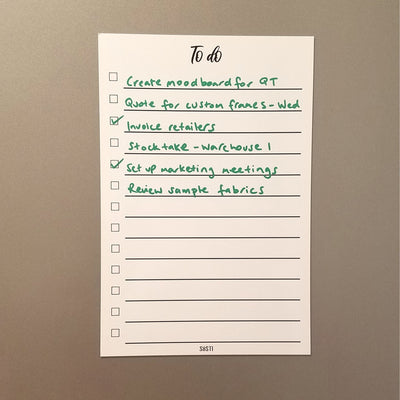 To do
Create moodboard for QT
Quote for custom frames - Wed
Invoice retailers
Stocktake - Warehouse 1
Set up marketing meetings
Review sample fabrics